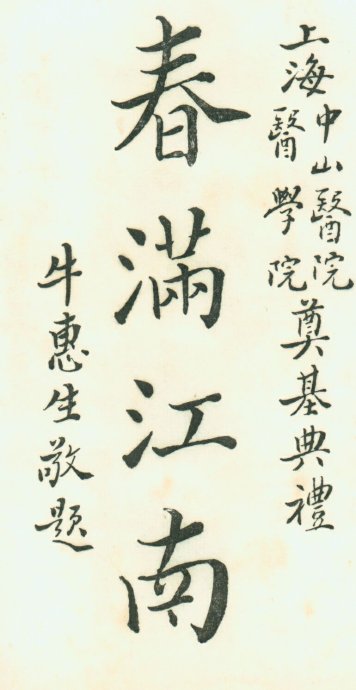 上海中山醫院醫學院奠基典禮
春滿江南
牛惠生敬題